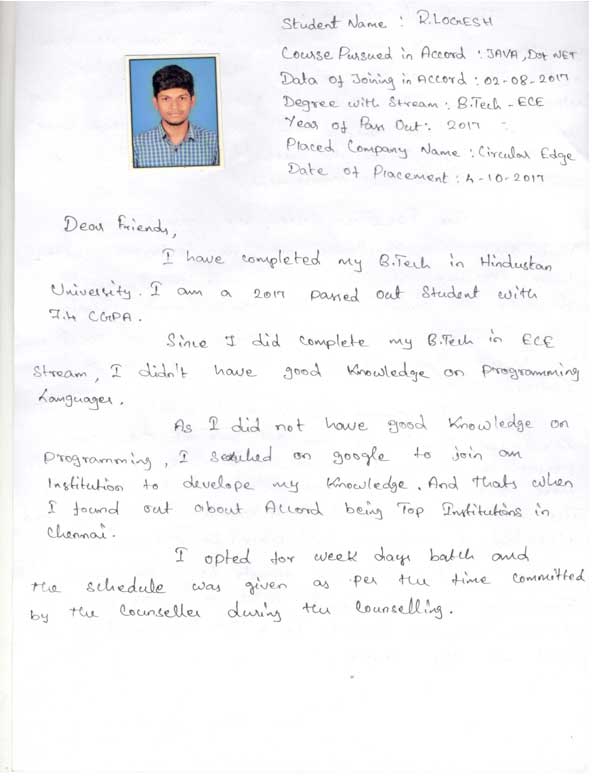 Student Name : R. LOGNESH
Course Pursued in Accord : JAVA, Dot NET
Data of Joining in Accord : 02-08-2017
Degree with Stream : B.Tech - ECE
Year of Pass Out : 2017
Placed Company Name : Circular Edge
Date of Placement : 4-10-2017
Dear Friends,
I have completed my B.Tech in Hindustan
University. I am a 2017 passed out Student with
7.4 CGPA.
Since I did complete my B.Tech in ECE
Stream, I didn't have good Knowledge on Programming
Languages.
As I did not have good Knowledge on
Programming, I searched on google to join an
Institution to develope my Knowledge. And thats when
I found out about Accord being Top Institutions in
Chennai.
I opted for week days batch and
the schedule was given as per the time committed
by the Counseller during the Counselling.